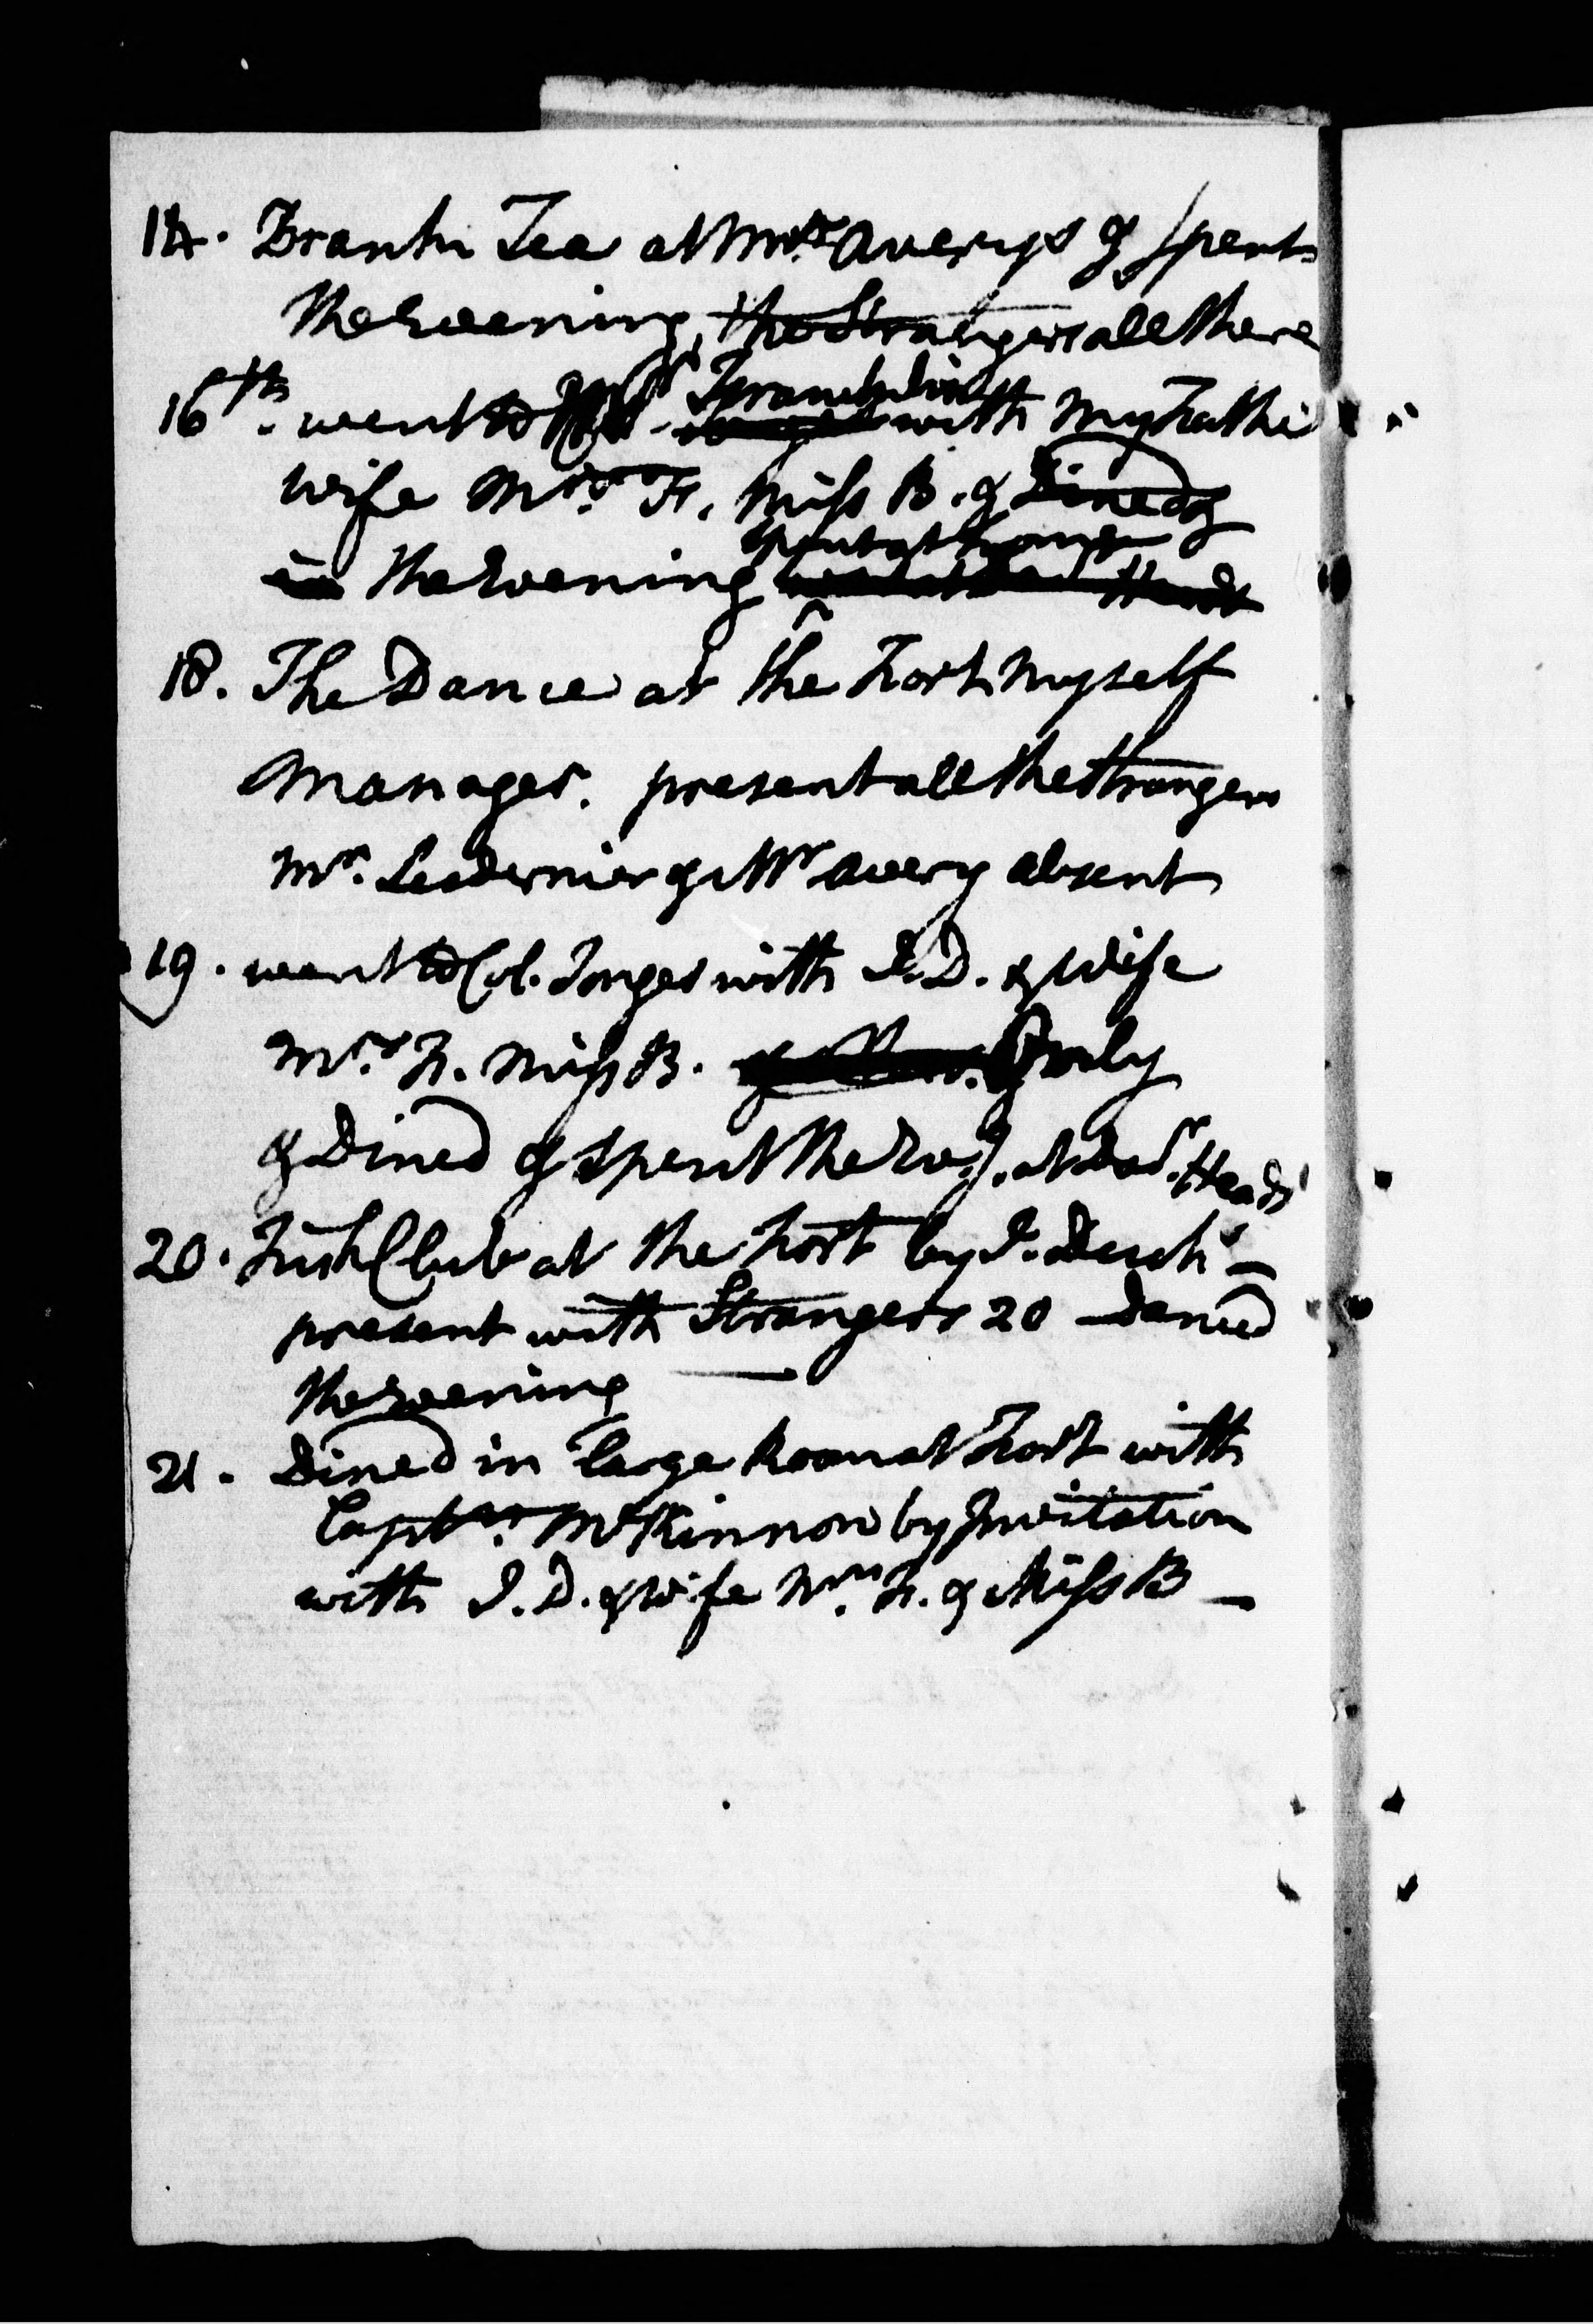 14. Drank Tea at Mrs. Averys & spent
the Evening, the Strangers all there
16th. went to Mrs. Franklins with my Father
wife Mrs. F. Miss B. & Dined &
spent at home
in the Evening
18. The Dance at the Fort myself
Manager. present all the Strangers
Mr. Ledernier & Mr Avery absent
19. went to Col. Tonges with I. D. & Wife
Mrs. F. Miss B. & Emily
& Dined & Spent the Eve.g. at Doc.r Heads
20. Fish Club at the Fort by I. Desch.s —
present with Strangers 20 — Danced
the Evening —
21. Dined in Large Room at Fort with
Capt.n McKinnon by Invitation
with I. D. & Wife Mrs. F. & Miss B —